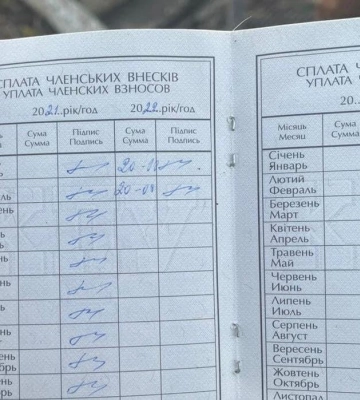 СПЛАТА ЧЛЕНСЬКИХ ВНЕСКІВ
УПЛАТА ЧЛЕНСКИХ ВЗНОСОВ
2021.рік/год 2022.рік/год
Сума
Сумма
Підпис
Подпись
Сума
Сумма
Підпис
Подпись
20-
20-
СПЛАТА Ч
УПЛАТА
20..
Місяць
Месяц
Сума
Сумма
Січень
Январь
Лютий
Февраль
Березень
Март
Квітень
Апрель
Травень
Май
Червень
Июнь
Липень
Июль
Серпень
Август
Вересень
Сентябрь
Жовтень
Октябрь
Листопад